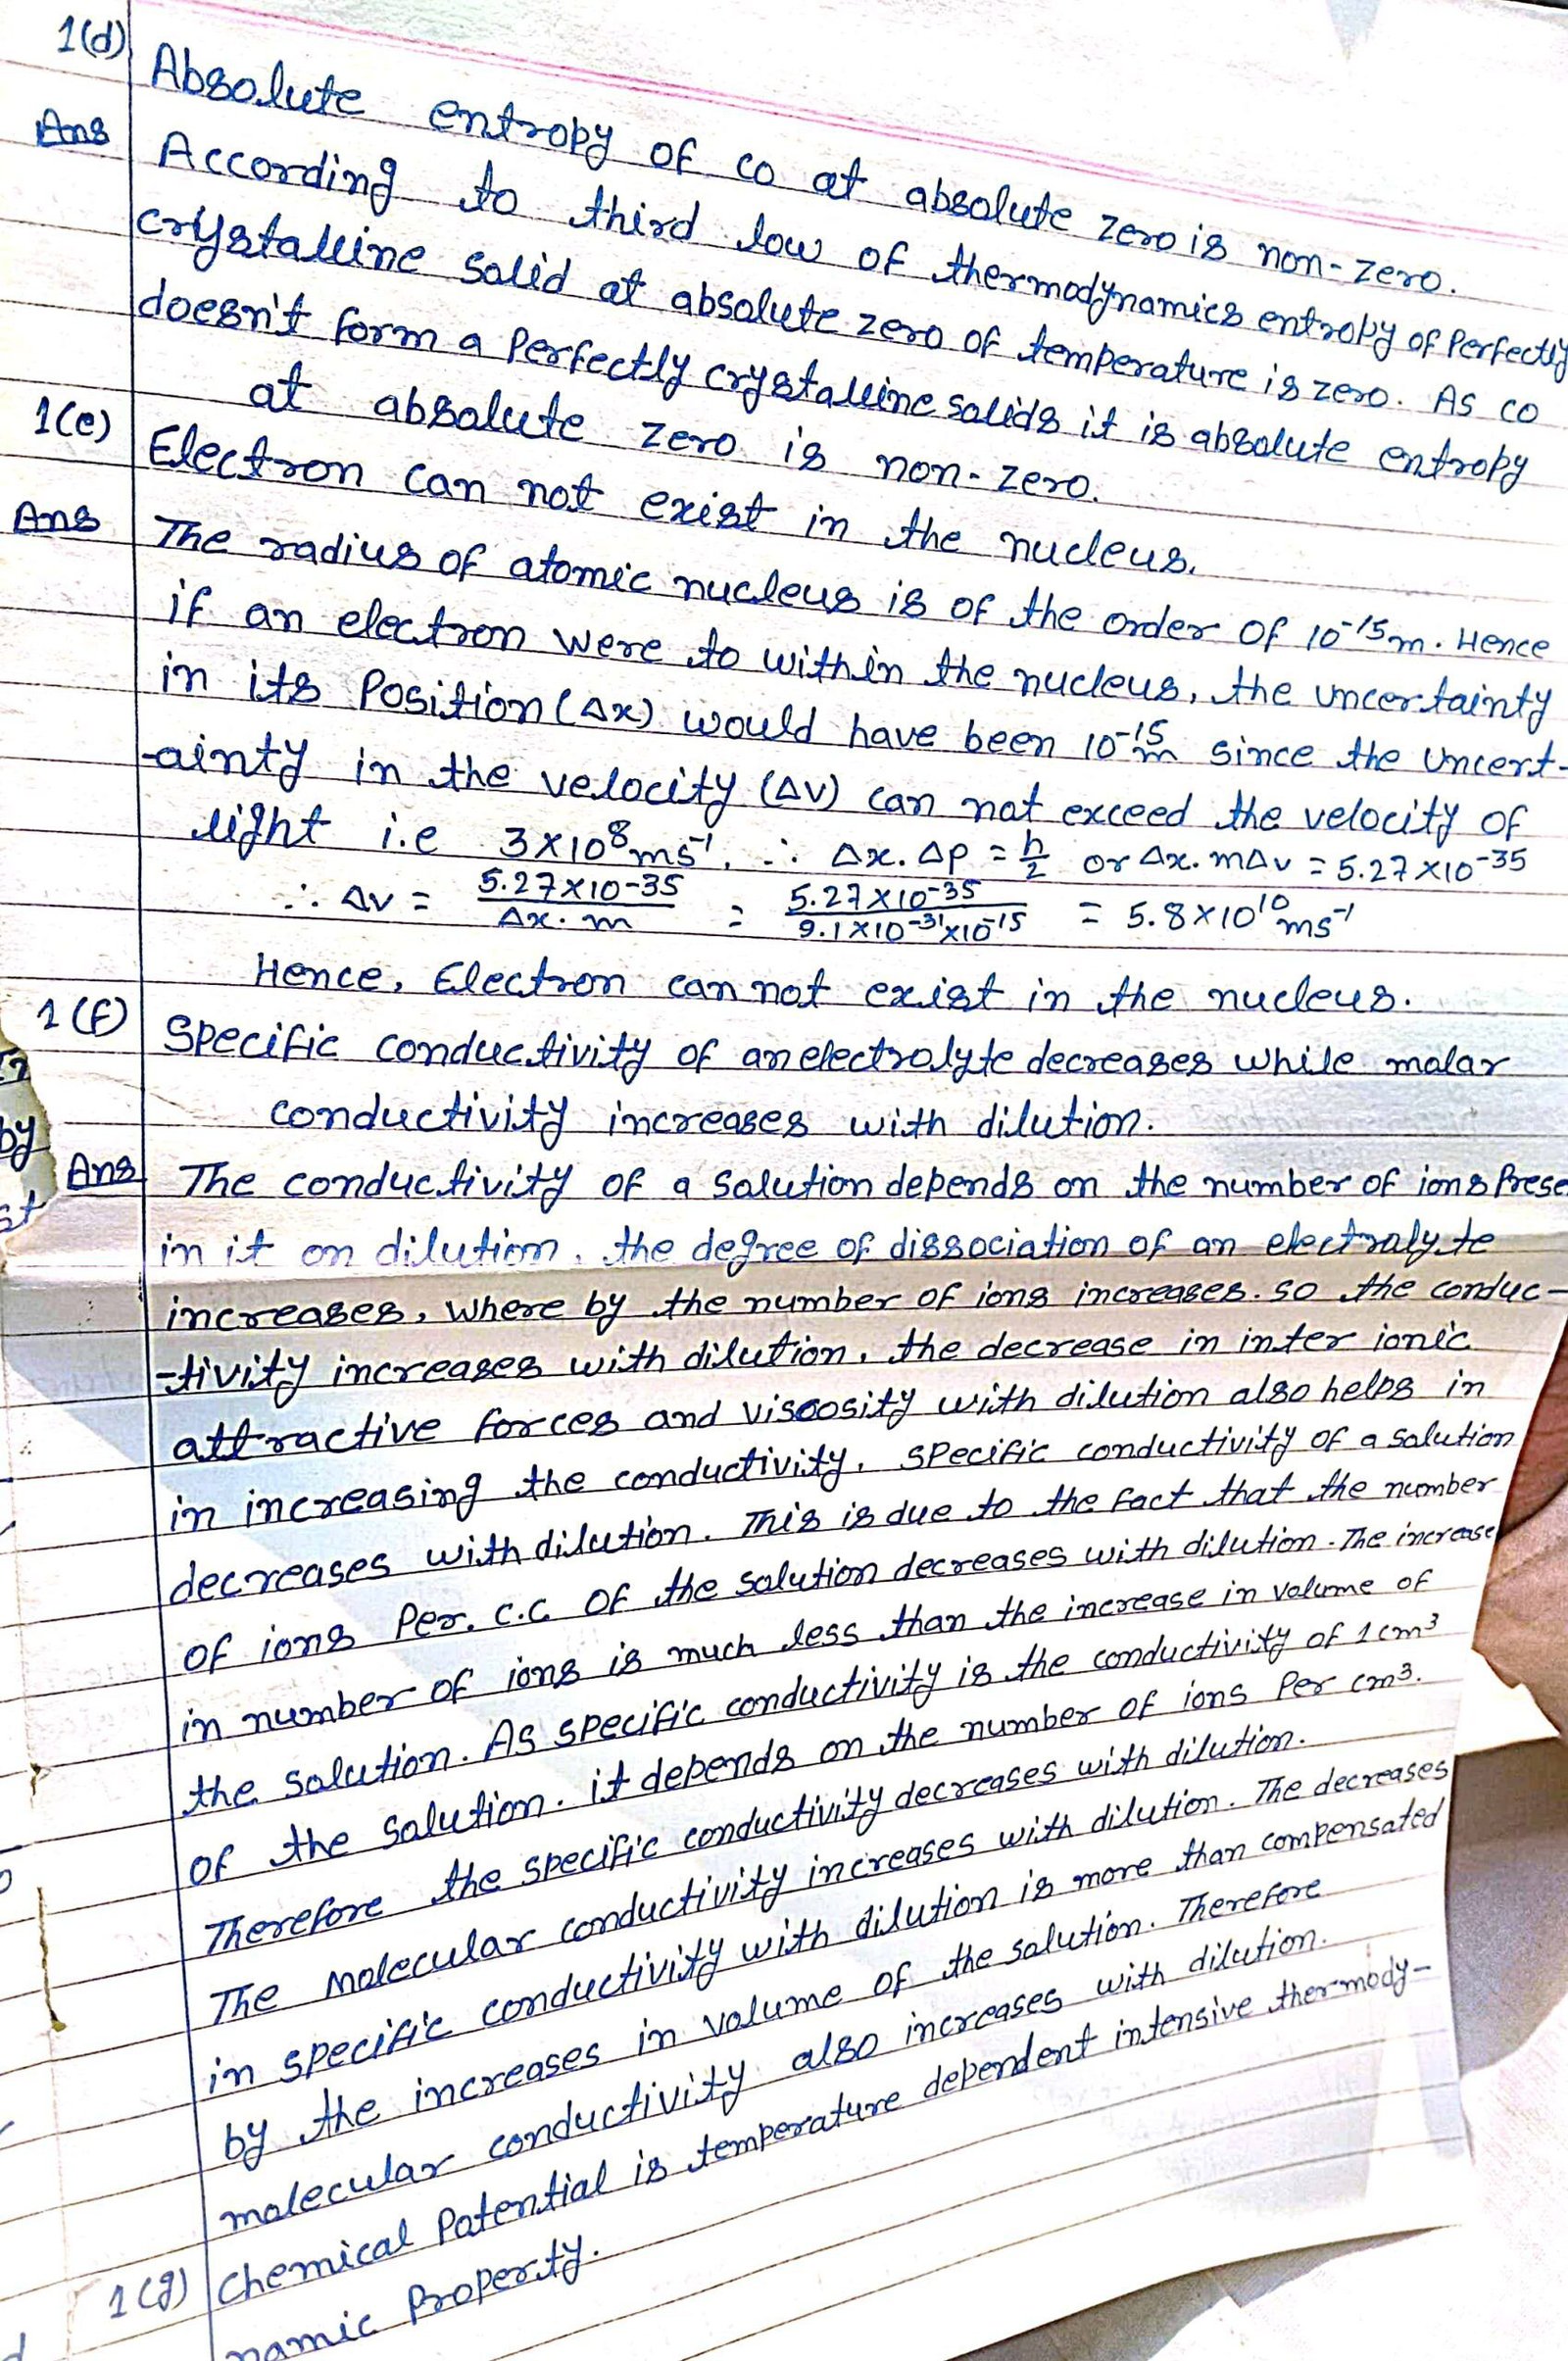 1(d) Absolute entropy of co at absolute zero is non-zero.
Ans According to third low of thermodynamics entropy of Perfectly
crystalline solid at absolute zero of temperature is zero. As co
doesn't form a Perfectly crystalline solids it is absolute entropy
at absolute zero is non-zero.
1(e) Electron can not exist in the nucleus.
Ans The radius of atomic nucleus is of the order of 10⁻¹⁵m. Hence
if an electron were to within the nucleus, the uncertainty
in its Position (Δx) would have been 10⁻¹⁵m since the uncert-
-ainty in the velocity (ΔV) can not exceed the velocity of
light i.e 3×10⁸ms⁻¹. ∴ Δx. Δp = h/2 or Δx. mΔv = 5.27×10⁻³⁵
∴ Δv = 5.27×10-35/Δx. m = 5.27×10⁻³⁵/9.1×10⁻³¹×10⁻¹⁵ = 5.8×10¹⁰ms⁻¹
Hence, Electron can not exist in the nucleus.
1(f) Specific conductivity of an electrolyte decreases while molar
conductivity increases with dilution.
Ans The conductivity of a Solution depends on the number of ions Prese
in it on dilution, the degree of dissociation of an electrolyte
increases, where by the number of ions increases. so the conduc-
-tivity increases with dilution, the decrease in inter ionic
attractive forces and viscosity with dilution also helps in
in increasing the conductivity, specific conductivity of a solution
decreases with dilution. This is due to the fact that the number
of ions Per. c.c of the solution decreases with dilution. The increase
in number of ions is much less than the increase in volume of
the solution. As specific conductivity is the conductivity of 1cm³
of the solution. it depends on the number of ions Per cm³.
Therefore the specific conductivity decreases with dilution.
The molecular conductivity increases with dilution. The decreases
in specific conductivity with dilution is more than compensated
by the increases in volume of the solution. Therefore
molecular conductivity also increases with dilution.
1(g) Chemical Potential is temperature dependent intensive thermody-
namic Property.
by
st